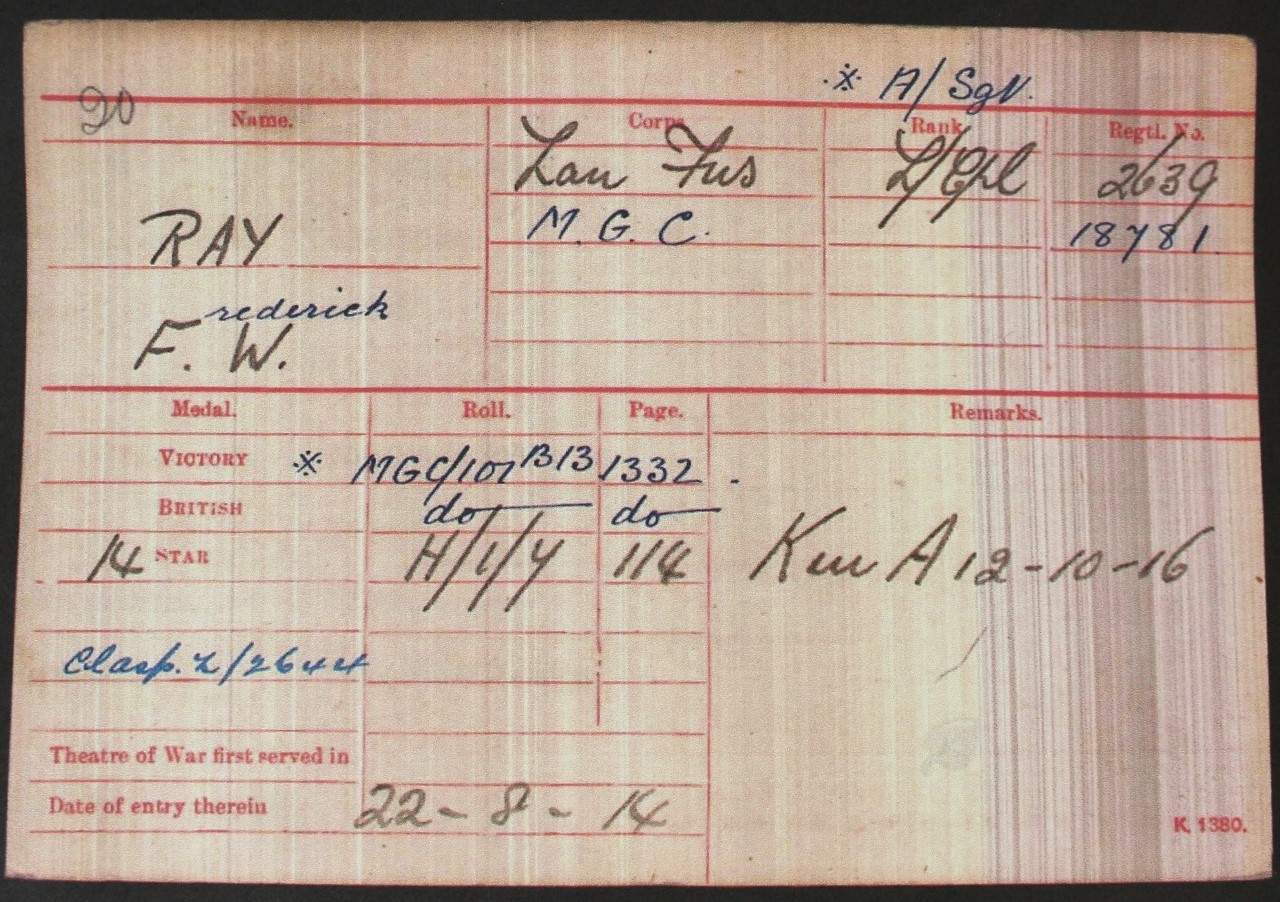 ※ A/Sgt.
20 Name. Corps. Rank. Regtl. No.
Lan Fus L/Cpl 2639
RAY M.G.C. 18781.
rederick
F. W.
Medal. Roll. Page. Remarks.
VICTORY ※ MGC/101 B13 1332.
BRITISH do do
14 STAR H/1/Y 114 K in A 12-10-16
Clasp. Z/2644
Theatre of War first served in
Date of entry therein 22-8-14
K. 1380.